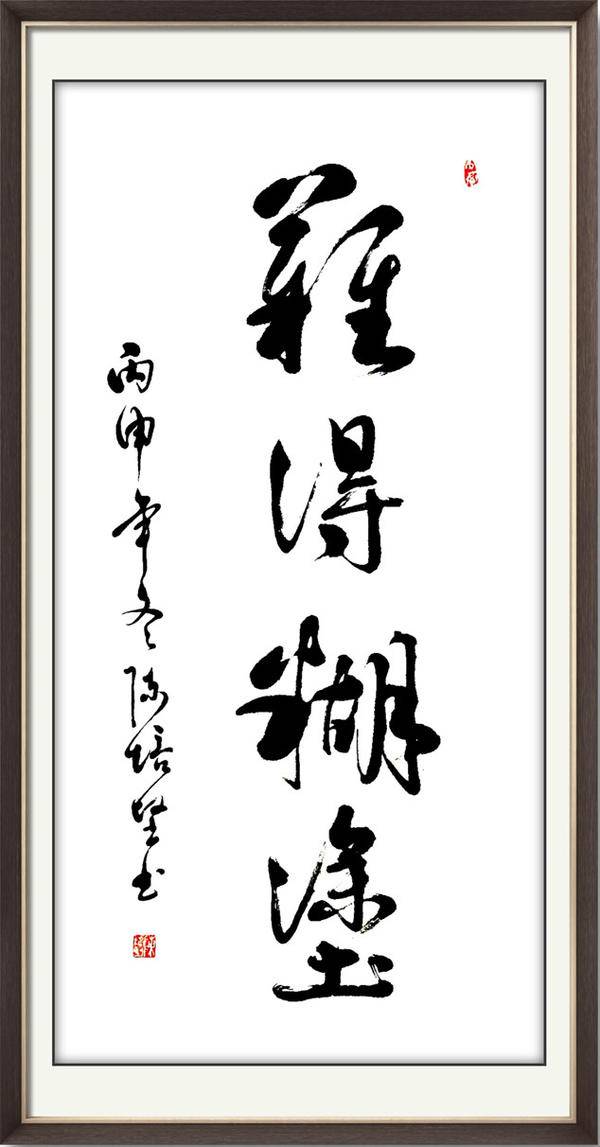 難得糊塗
丙申年冬陈培坚书